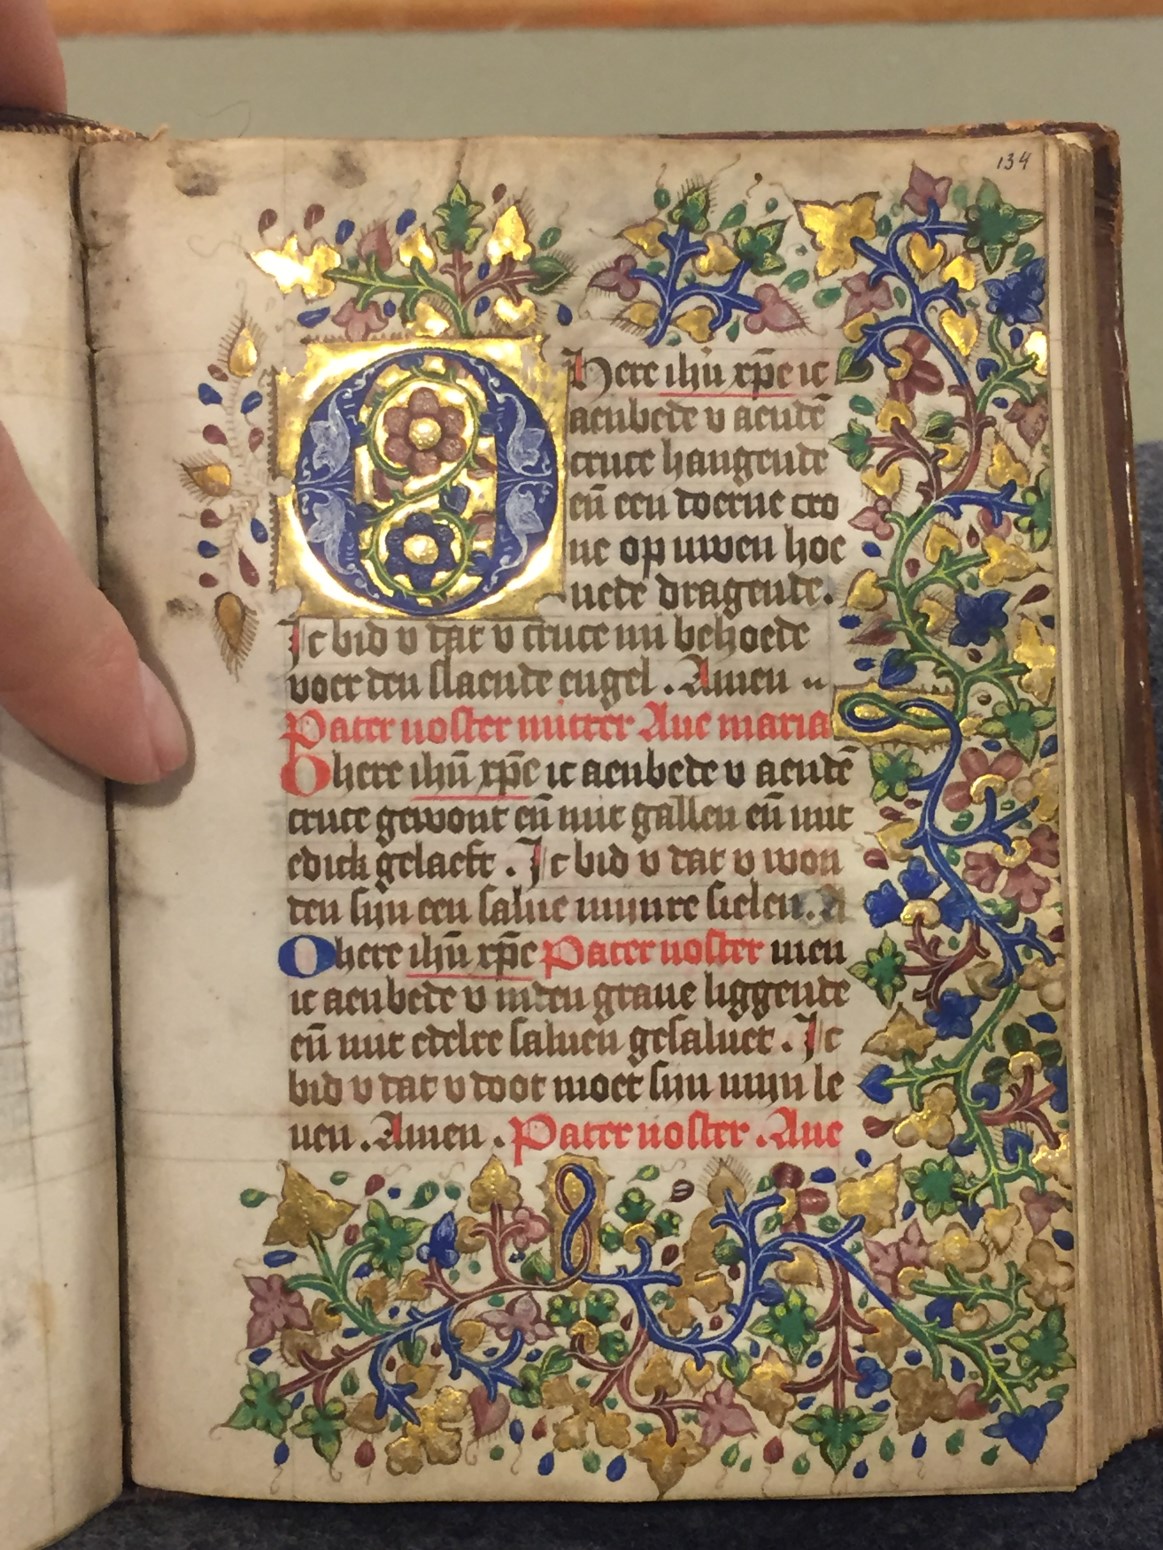 134
O here ihū xp̄e ic
aenbede v aendē
cruce hangende
eñ een doerne cro
ne op uwen hoe
uede dragende.
Ic bid v dat v cruce mi behoede
voer den slaende engel. Amen
Pater noster mitter Aue maria
O here ihū xp̄e ic aenbede v aendē
cruce gewont eñ mit gallen eñ mit
edick gelaeft. Ic bid v dat v won
den sijn een salue mijnre sielen. A
O here ihū xp̄e Pater noster men
ic aenbede v inden graue liggende
eñ mit edelre saluen gesaluet. Ic
bid v dat v doot moet sijn mijn le
uen. Amen. Pater noster. Aue